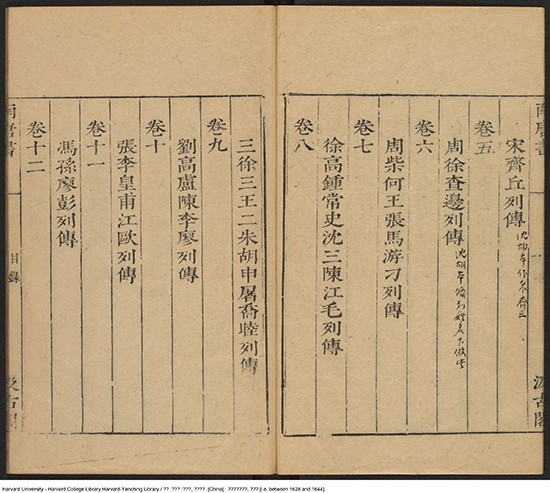 宋齊丘列傳 沈胡本作
卷五
周徐查邊列傳 沈胡本
卷六
周柴何王張馬游刁列傳
卷七
徐高鍾常史沈三陳江毛列傳
卷八
三徐三王二朱胡申屠喬睦列傳
卷九
劉高盧陳李廖列傳
卷十
張李皇甫江歐列傳
卷十一
馮孫廖彭列傳
卷十二
目錄
Harvard University - Harvard College Library Harvard-Yenching Library / ??. ???. :???, ????. [China] : ???????, ??? [i.e. between 1628 and 1644].